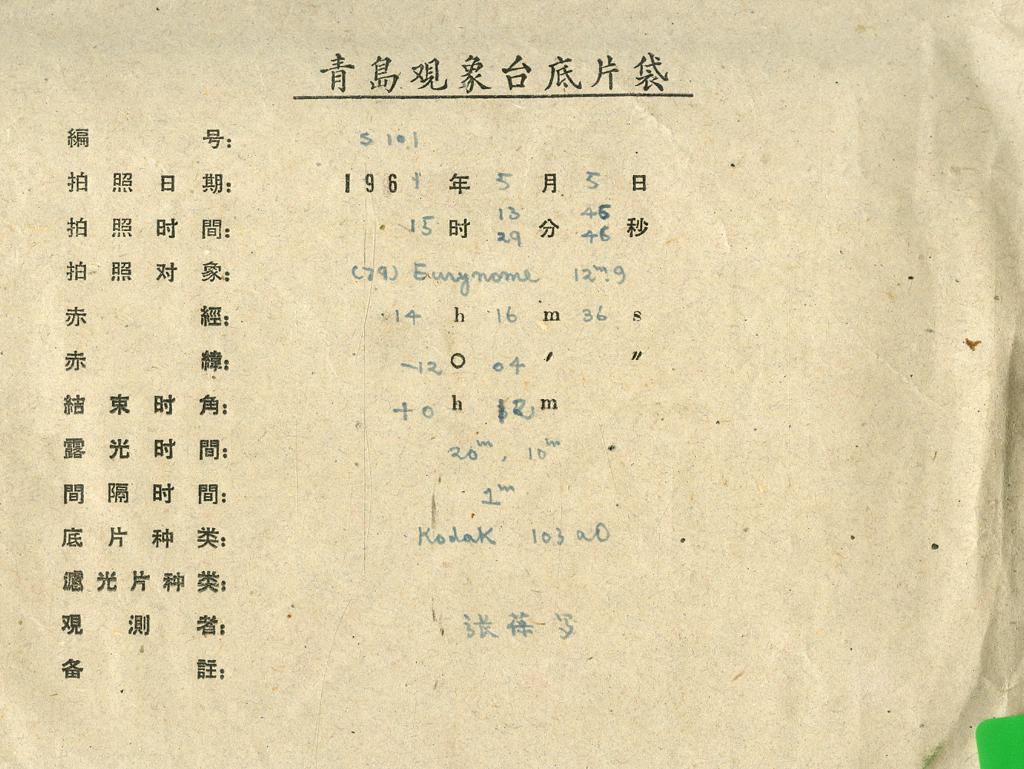 青島观象台底片袋
編号: S 101
拍照日期: 1961年5月5日
拍照时間: 15时 13 29 分 45 46 秒
拍照对象: (79) Eurynome 12ᵐ.9
赤經: 14 h 16 m 36 s
赤緯: -12 ○ 04 ′ ″
結束时角: +0 h 12 m
露光时間: 20ᵐ, 10ᵐ
間隔时間: 1ᵐ
底片种类: Kodak 103 aO
濾光片种类:
观測者: 張葆
备註: